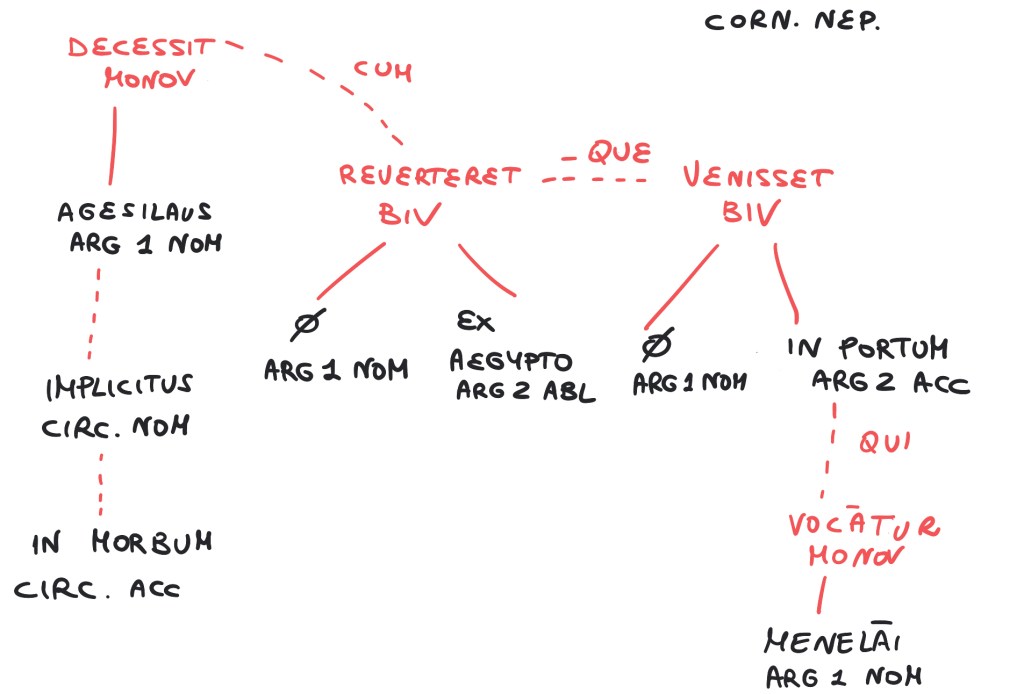 CORN. NEP.
DECESSIT
MONOV
CUM
REVERTERET
BIV
- QUE
VENISSET
BIV
AGESILAUS
ARG 1 NOM
Ø
ARG 1 NOM
EX
AEGYPTO
ARG 2 ABL
Ø
ARG 1 NOM
IN PORTUM
ARG 2 ACC
IMPLICITUS
CIRC. NOM
QUI
IN MORBUM
CIRC. ACC
VOCĀTUR
MONOV
MENELĀI
ARG 1 NOM